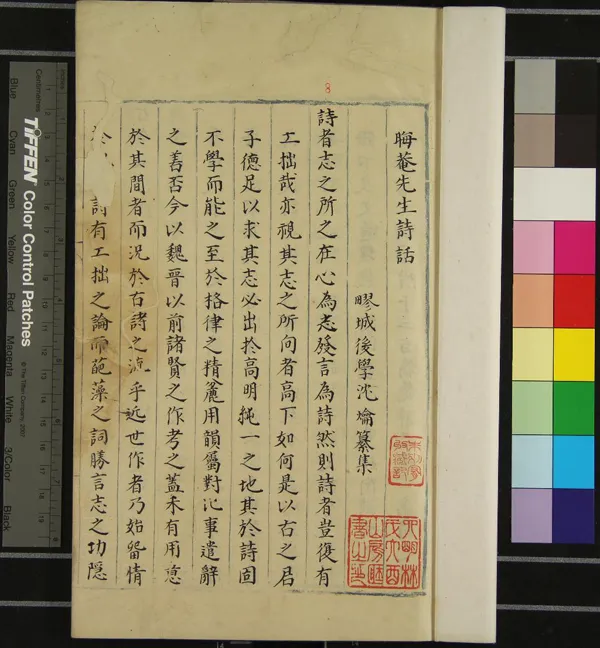 8
晦菴先生詩話
疁城後學沈爚纂集
詩者志之所之在心為志發言為詩然則詩者豈復有
工拙哉亦視其志之所向者高下如何是以古之君
子德足以求其志必出於高明純一之地其於詩固
不學而能之至於格律之精麄用韻屬對比事遣辭
之善否今以魏晉以前諸賢之作考之蓋未有用意
於其間者而況於古詩之流乎近世作者乃始留情
於 詩有工拙之論而葩藻之詞勝言志之功隱
Inches
Centimetres
TIFFEN® Color Control Patches
© The Tiffen Company, 2007
Blue
Cyan
Green
Yellow
Red
Magenta
White
3/Color
Black